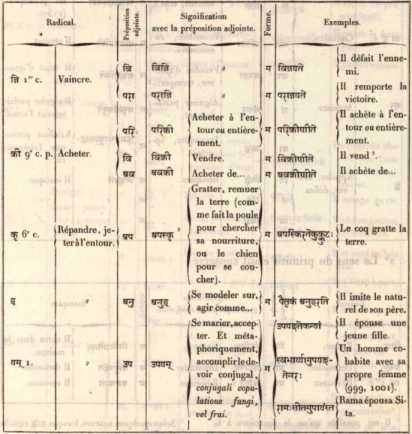 Radical.
Préposition adjointe.
Signification
avec la préposition adjointe.
Forme.
Exemples.
जि 1re c. Vaincre.
वि विजि " म विजयते
Il défait l'enne-
mi.
परा पराजि " म पराजयते
Il remporte la
victoire.
क्री 9e c. p. Acheter.
परि परिक्री
Acheter à l'en-
tour ou entière-
ment.
म परिक्रीणीते
Il achète à l'en-
tour ou entière-
ment.
वि विक्री Vendre. म विक्रीणीते Il vend
अव अवक्री Acheter de... म अवक्रीणीते Il achète de...
कॄ 6e c.
Répandre, je-
ter à l'entour.
अप अपस्कॄ
Gratter, remuer
la terre (com-
me fait la poule
pour chercher
sa nourriture,
ou le chien
pour se cou-
cher).
म अपस्किरतेकुक्कुटः
Le coq gratte la
terre.
हृ " अनु अनुहृ
Se modeler sur,
agir comme...
म पैतृकं अनुहरति
Il imite le natu-
rel de son père.
यम् 1. " उप उपयम्
Se marier, accep-
ter. Et méta-
phoriquement,
accomplir le de-
voir conjugal,
conjugali copu-
latione fungi,
vel frui.
म
उपयच्छतेकन्यां
Il épouse une
jeune fille.
स्वभार्यामुपयच्छ-
तेनरः
Un homme co-
habite avec sa
propre femme
(999, 1001).
रामः सीतामुपायंस्त
Rama épousa Si-
ta.